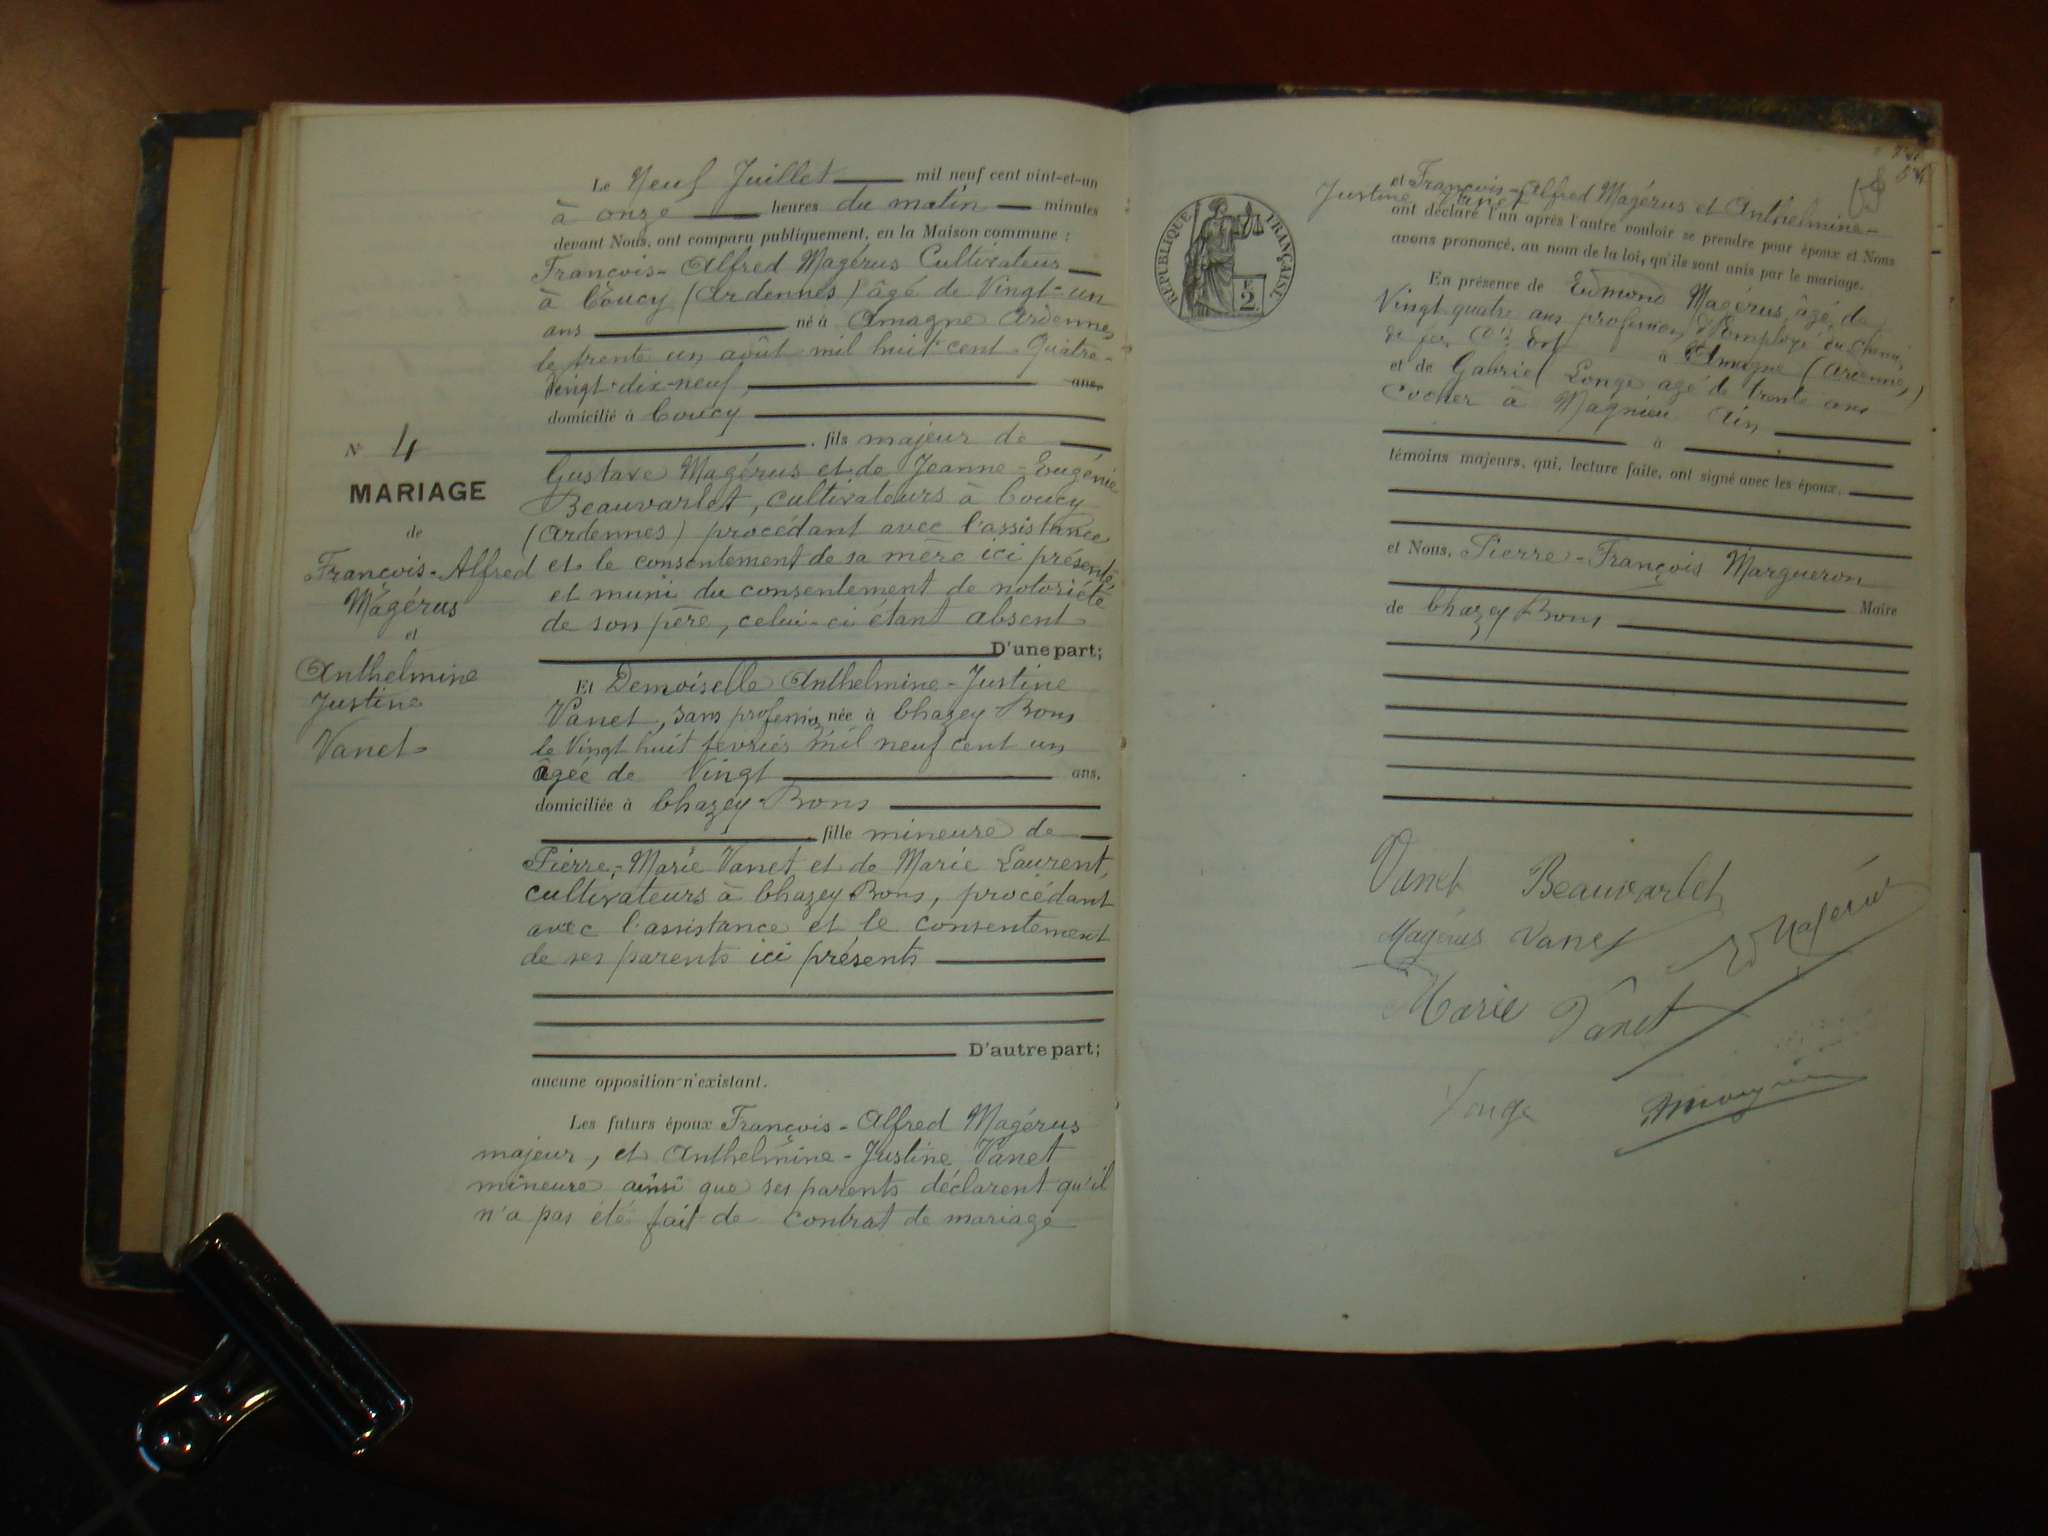 Le Neuf Juillet mil neuf cent vint-et-un
à onze heures du matin minutes
devant Nous, ont comparu publiquement, en la Maison commune :
François-Alfred Magérus Cultivateur
à Coucy (Ardennes) âgé de Vingt-un
ans né à Amagne Ardennes
le trente un août mil huit cent Quatre-
Vingt-dix-neuf, ans
domicilié à Coucy
fils majeur de
Gustave Magérus et de Jeanne-Eugénie
Beauvarlet, cultivateurs à Coucy
(Ardennes) procédant avec l'assistance
et le consentement de sa mère ici présente,
et muni du consentement de notoriété
de son père, celui-ci étant absent
D'une part;
N° 4
MARIAGE
de
François-Alfred
Magérus
et
Anthelmine
Justine
Vanet
Et Demoiselle Anthelmine-Justine
Vanet, sans profession née à Chazey Bons
le Vingt huit février mil neuf cent un
âgée de Vingt ans,
domiciliée à Chazey-Bons
fille mineure de
Pierre-Marie Vanet et de Marie Laurent,
cultivateurs à Chazey Bons, procédant
avec l'assistance et le consentement
de ses parents ici présents
D'autre part;
aucune opposition n'existant.
Les futurs époux François-Alfred Magérus
majeur, et Anthelmine-Justine Vanet
mineure ainsi que ses parents déclarent qu'il
n'a pas été fait de contrat de mariage
RÉPUBLIQUE FRANÇAISE
2 F
et François-Alfred Magérus et Anthelmine-
Justine Vanet
ont déclaré l'un après l'autre vouloir se prendre pour époux et Nous
avons prononcé, au nom de la loi, qu'ils sont unis par le mariage.
En présence de Edmond Magérus, âgé de
Vingt quatre ans profession d'Employé du chemin
de fer Est à Amagne (Ardennes)
et de Gabriel Longe agé de trente ans
Cocher à Magnieu Ain
à
témoins majeurs, qui, lecture faite, ont signé avec les époux,
et Nous, Pierre-François Margueron
Maire
de Chazey Bons
Vanet Beauvarlet
Magérus Vanet E Magérus
Marie Vanet
Longe